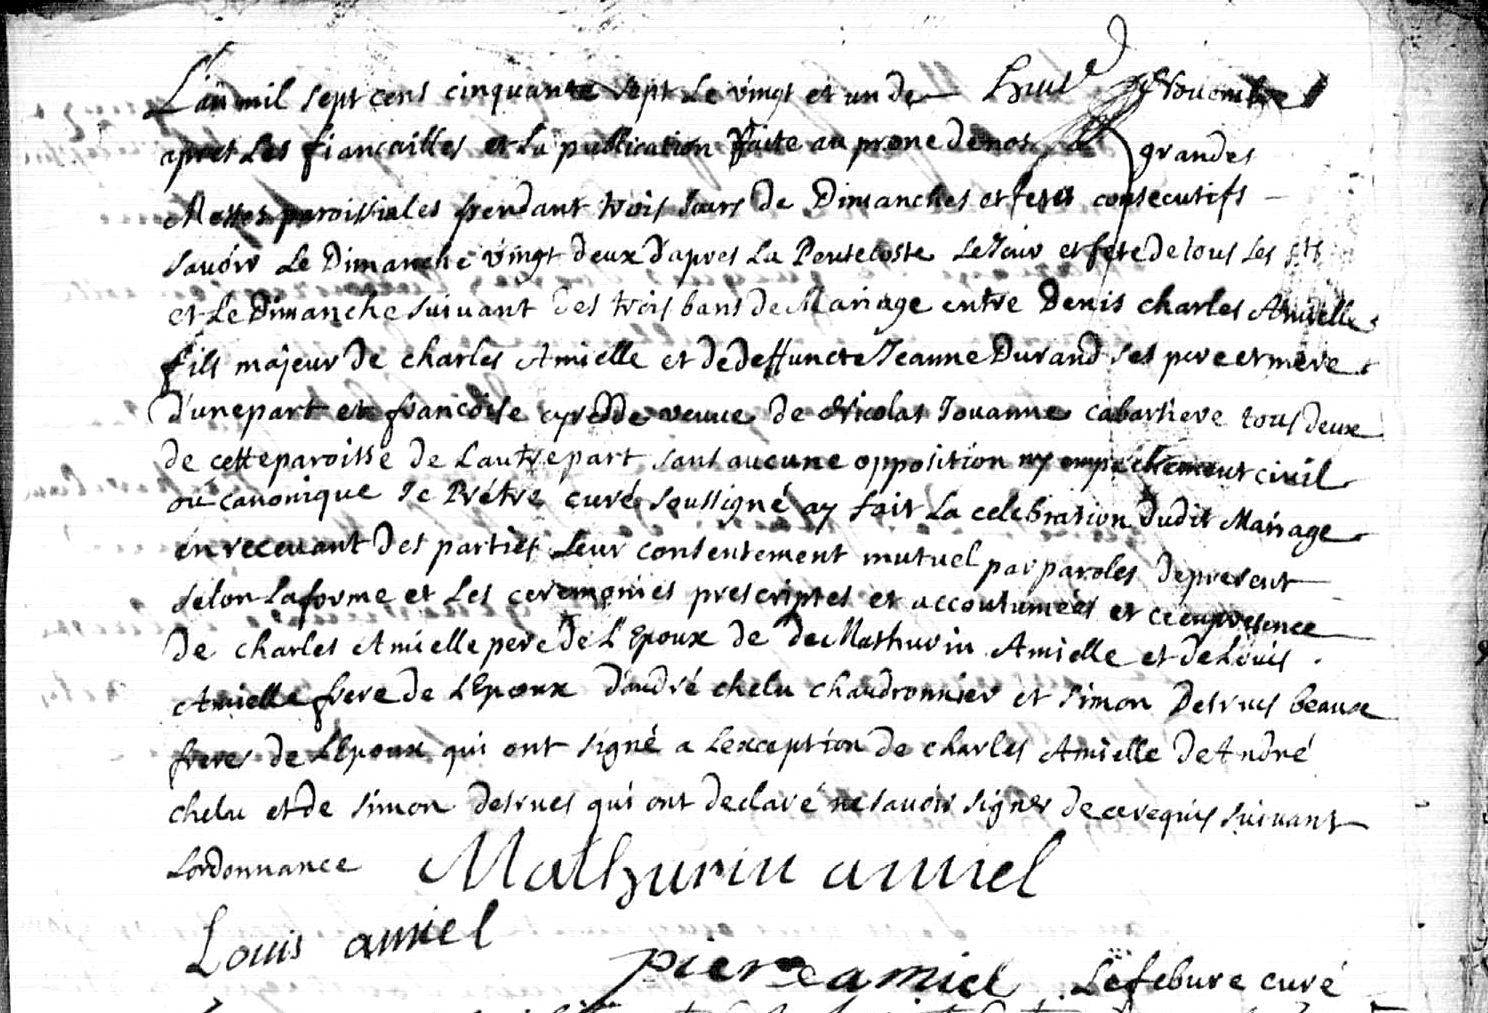 L'an mil sept cens cinquante sept le vingt et un de Novembre
apres les fiançailles et la publication faite au prone de nos grandes
Messes paroissiales pendant trois Jours de Dimanches et fetes consecutifs
savoir le Dimanche vingt deux d'apres la Pentecoste le Jour et fete de tous les sts
et le Dimanche suivant des trois bans de Mariage entre Denis charles Amielle
fils majeur de charles Amielle et de deffuncte Jeanne Durand ses pere et mere
d'une part et françoise veuve de Nicolas Jouanne cabartiere tous deux
de cette paroisse de l'autre part sans aucune opposition ny empechement civil
ou canonique Je Prétre curé soussigné ay fait la celebration dudit Mariage
en recevant des parties leur consentement mutuel par paroles de present
selon la forme et les ceremonies prescriptes et accoutumées et ce en presence
de charles Amielle pere de l'Epoux de de Mathurin Amielle et de Louis
Amielle frere de l'Epoux d'andré chelu chaudronnier et simon Desrues beaux
freres de l'Epoux qui ont signé a l'exception de charles Amielle de André
chelu et de simon desrues qui ont declaré ne savoir signer de ce requis suivant
l'ordonnance Mathurin amiel
Louis amiel
pierre amiel Lefebure curé